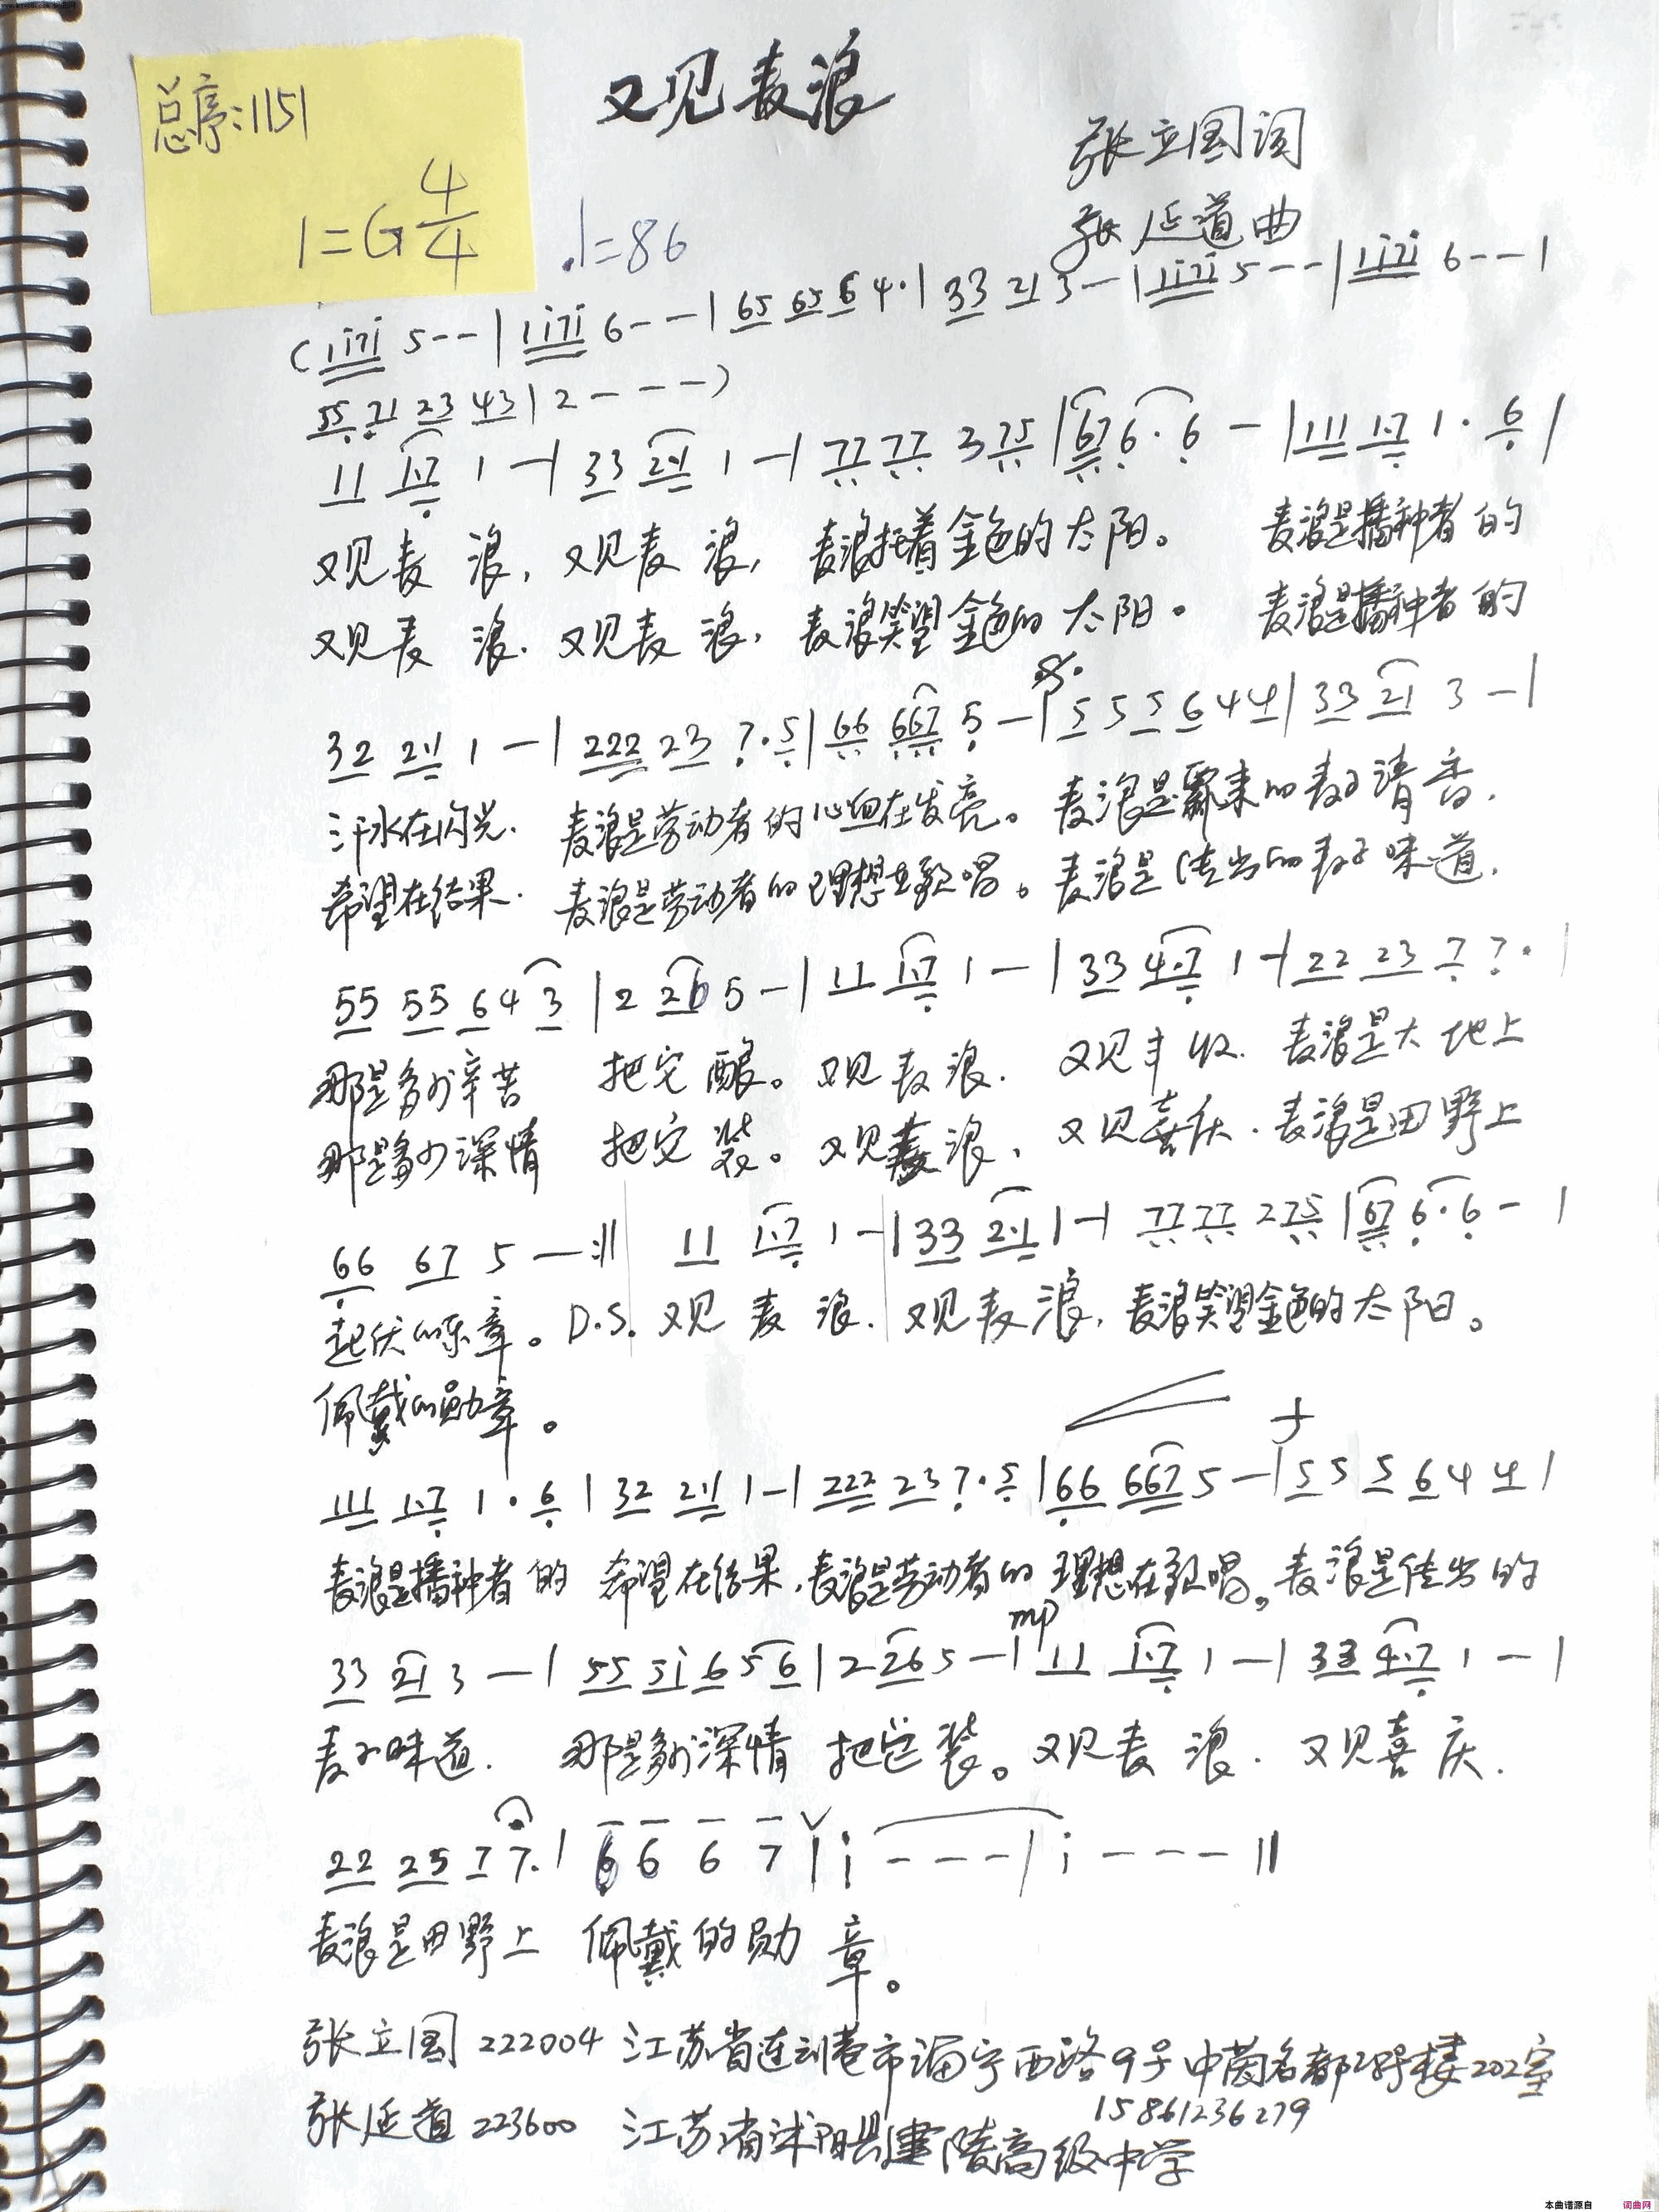 总序:1151
又见麦浪
1=G 4/4 ♩=86
张立国词
张延道曲
(1i7i 5--|1i7i 6--|65 65 6 4·|33 21 3-|1i7i 5--|1i7i 6--|
55 71 23 43|2---)
11 1·7 1-|33 2·1 1-|77 77 3 75|67 6·6-|111 1·7 1·6|
又见麦 浪,又见麦 浪,麦浪托着金色的太阳。 麦浪是播种者的
又见麦 浪.又见麦 浪,麦浪笑望金色的太阳。 麦浪是播种者的
32 2·1 1-|222 23 7·5|66 667 5-|5 5 5 6 4 4|33 21 3-|
汗水在闪光.麦浪是劳动者的心血在发亮。麦浪是飘来的麦子清香.
希望在结果.麦浪是劳动者的理想在歌唱。麦浪是传出的麦子味道.
55 55 6 4 3|2 26 5-|11 1·7 1-|33 4·7 1-|22 23 7 7·|
那是多少辛苦 把它酿。又见麦浪.又见丰收.麦浪是大地上
那是多少深情 把它装。又见麦浪,又见喜庆.麦浪是田野上
66 67 5-:‖ 11 1·7 1-|33 2·1 1-|77 77 2 75|67 6·6-|
起伏的乐章。D.S.又见麦浪.又见麦浪,麦浪笑望金色的太阳。
佩戴的勋章。
f
111 1·7 1·6|32 2·1 1-|222 23 7·5|66 667 5-|5 5 5 6 4 4|
麦浪是播种者的 希望在结果,麦浪是劳动者的理想在歌唱。麦浪是传出的
mp
33 21 3-|55 5i 6 5 6|2 26 5-|11 1·7 1-|33 4·7 1-|
麦子味道. 那是多少深情 把它装。又见麦浪.又见喜庆.
22 25 7 7·|6 6 6 7|i---|i---‖
麦浪是田野上 佩戴的勋 章。
张立国 222004 江苏省连云港市海宁西路9号中茵名都2号楼202室
15861236279
张延道 223600 江苏省沭阳县建陵高级中学
本曲谱源自 词曲网